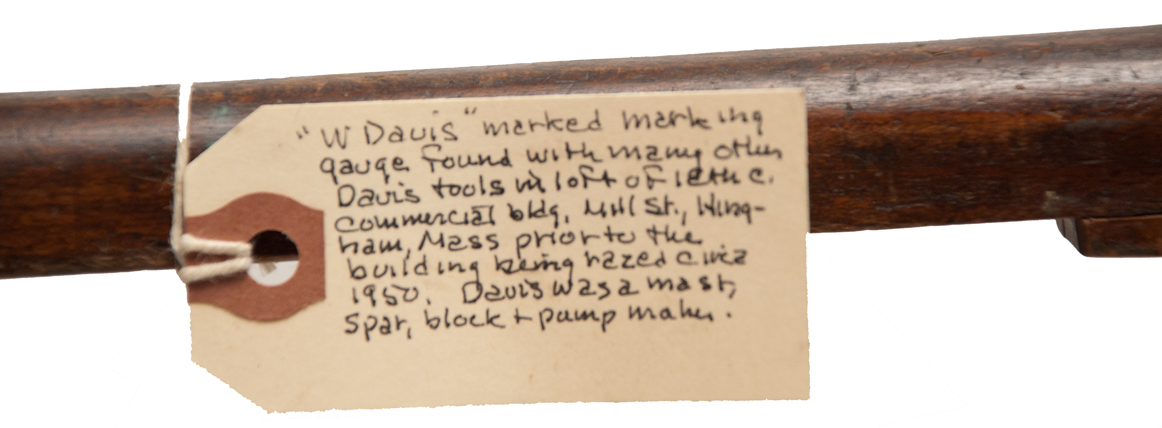 "W Davis" marked marking
gauge found with many other
Davis tools in loft of 18th c.
commercial bldg, Mill St., Hing-
ham, Mass prior to the
building being razed circa
1950. Davis was a mast,
spar, block + pump maker.